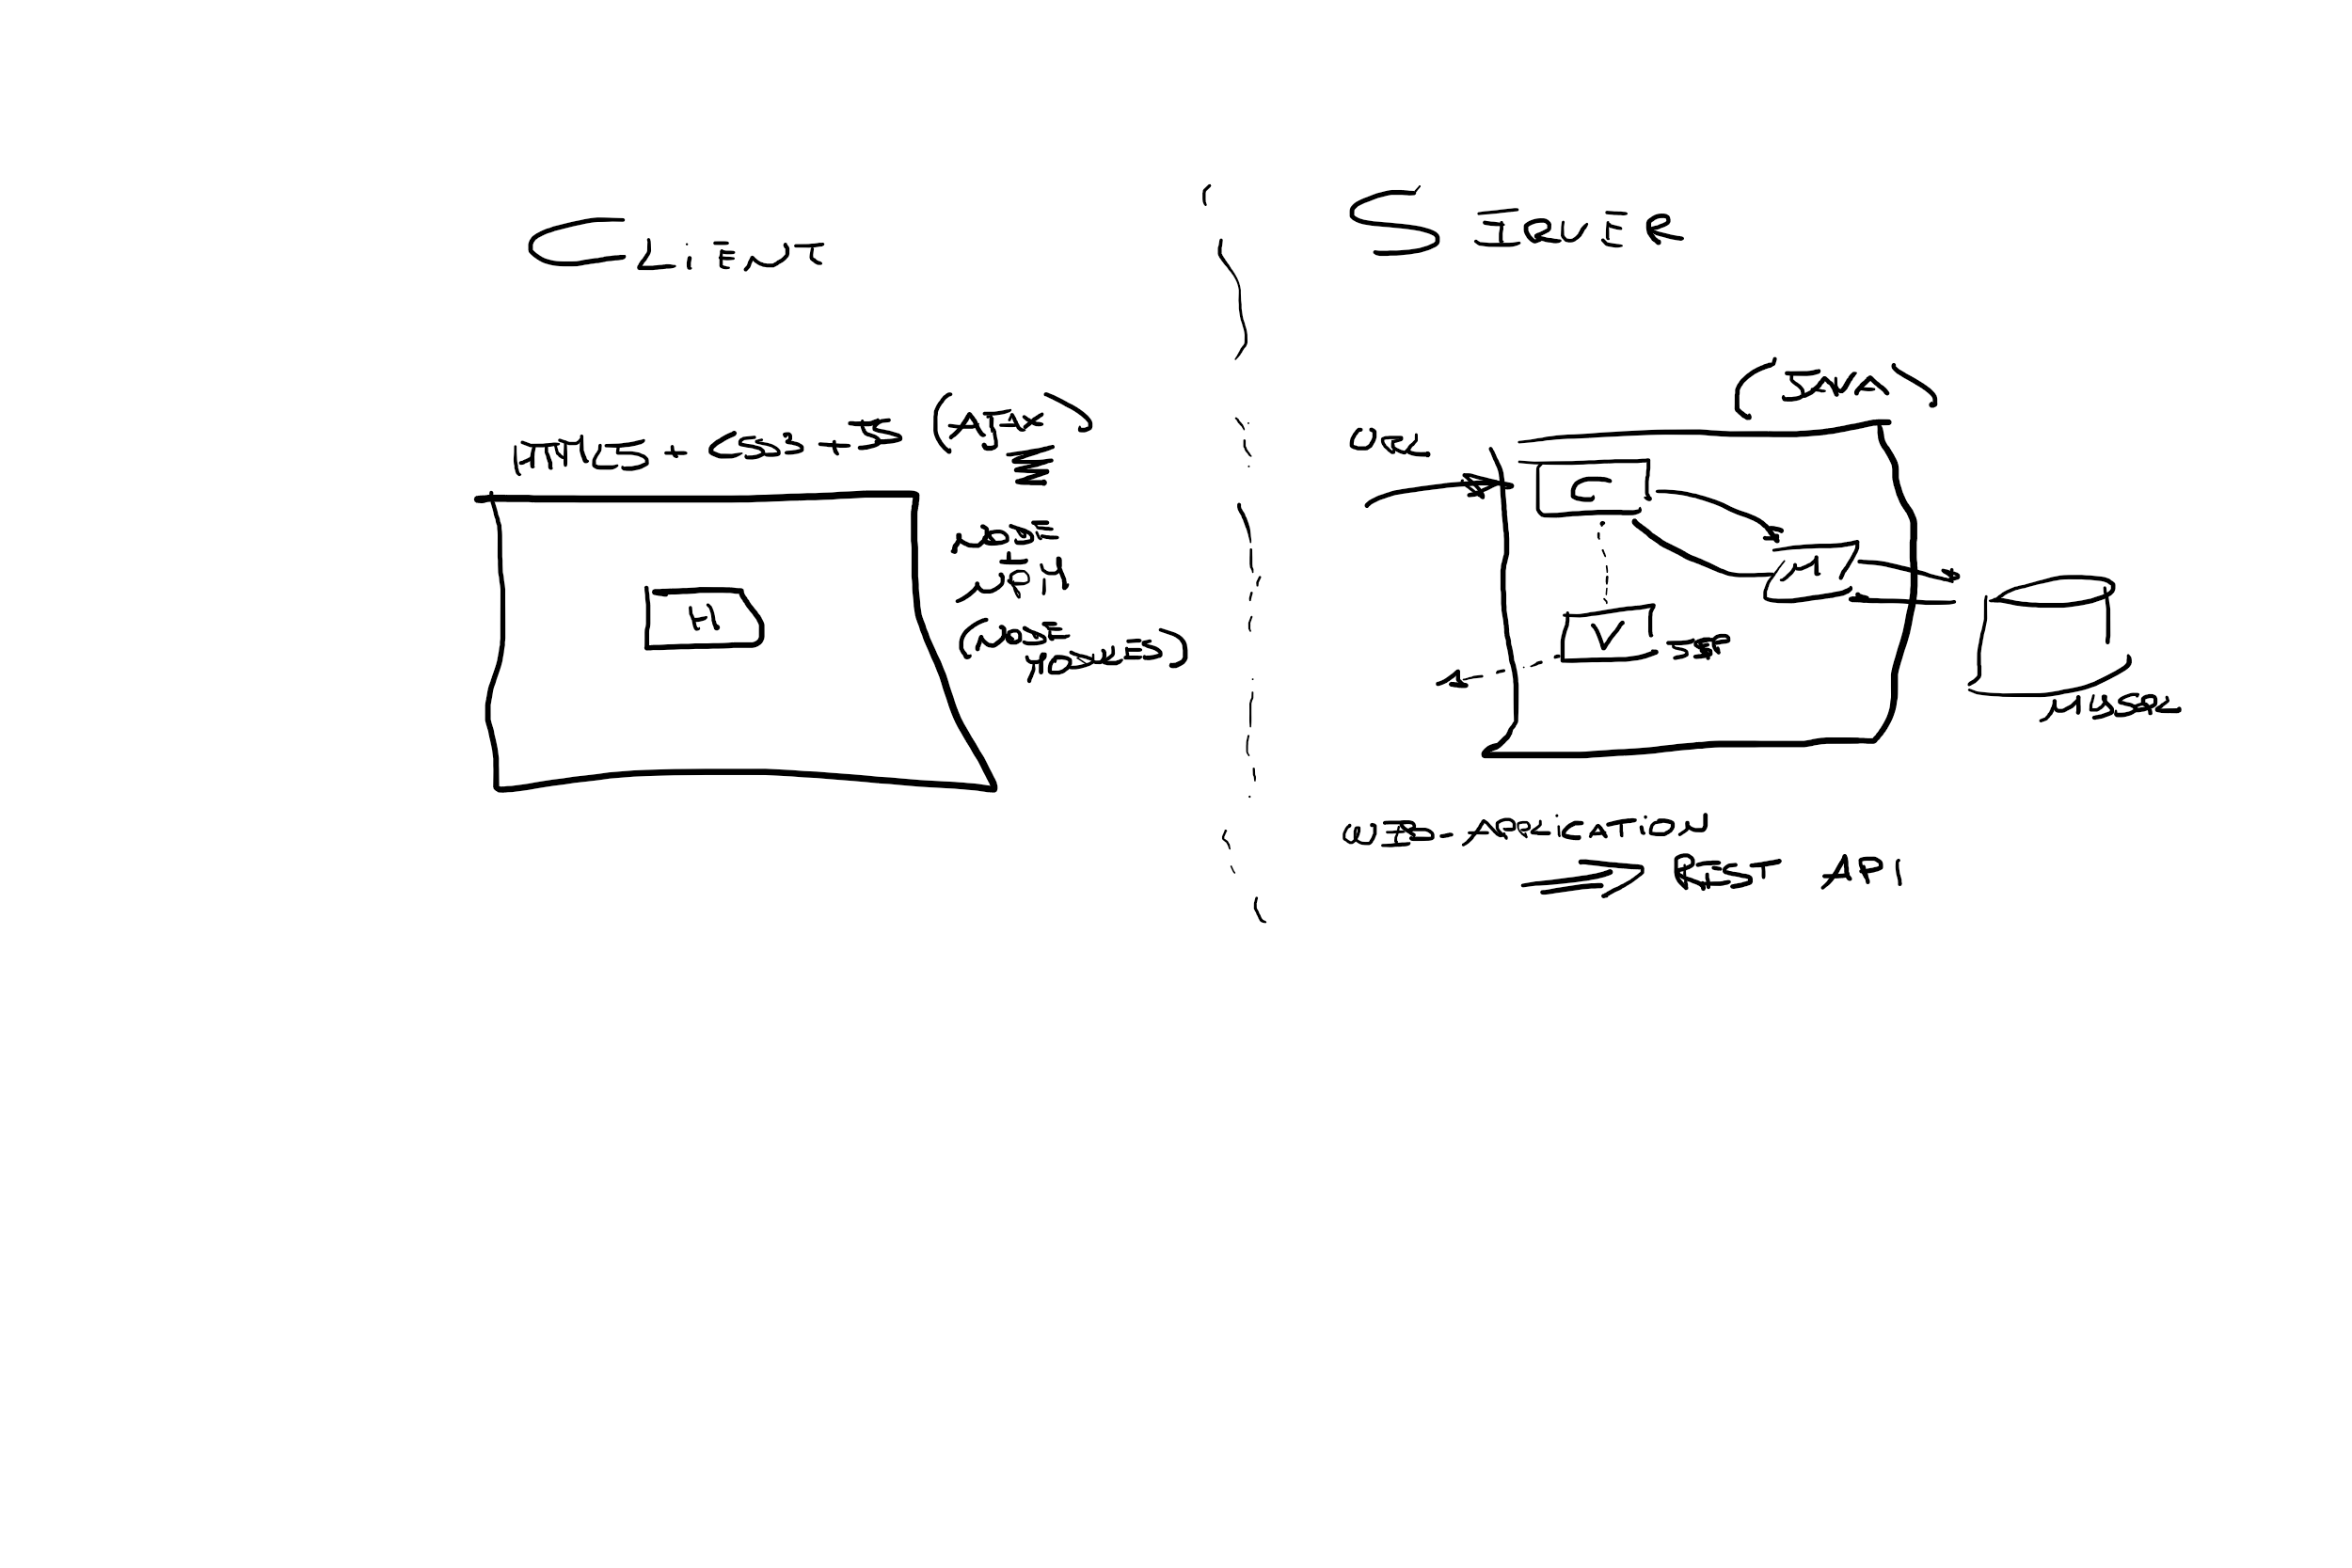 CLIENT
SERVER
HTML5 + CSS3 + JS (AJAX)
NODE
+
NPM
(NODE
MODULES)
H
(JAVA)
URL
C
M
V
JSP
MYSQL
WEB-APPLICATION
=> REST API